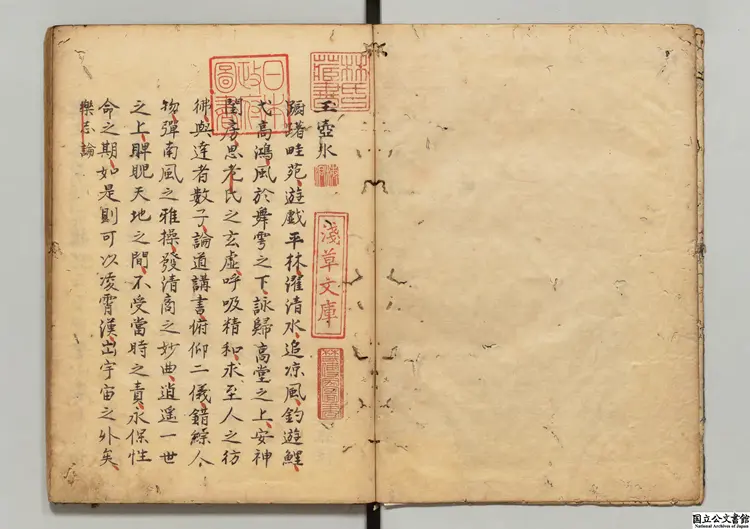 林氏
藏書
玉壺冰
淺草文庫
日本
政府
圖書
蹰躇畦苑遊戲平林濯清水追凉風釣遊鯉
弋高鴻風於舞雩之下詠歸高堂之上安神
閨房思老氏之玄虛呼吸精和求至人之彷
彿與達者數子論道講書俯仰二儀錯綜人
物彈南風之雅操發清商之妙曲逍遥一世
之上睥睨天地之間不受當時之責永保性
命之期如是則可以凌霄漢出宇宙之外矣
樂志論
国立公文書館
National Archives of Japan